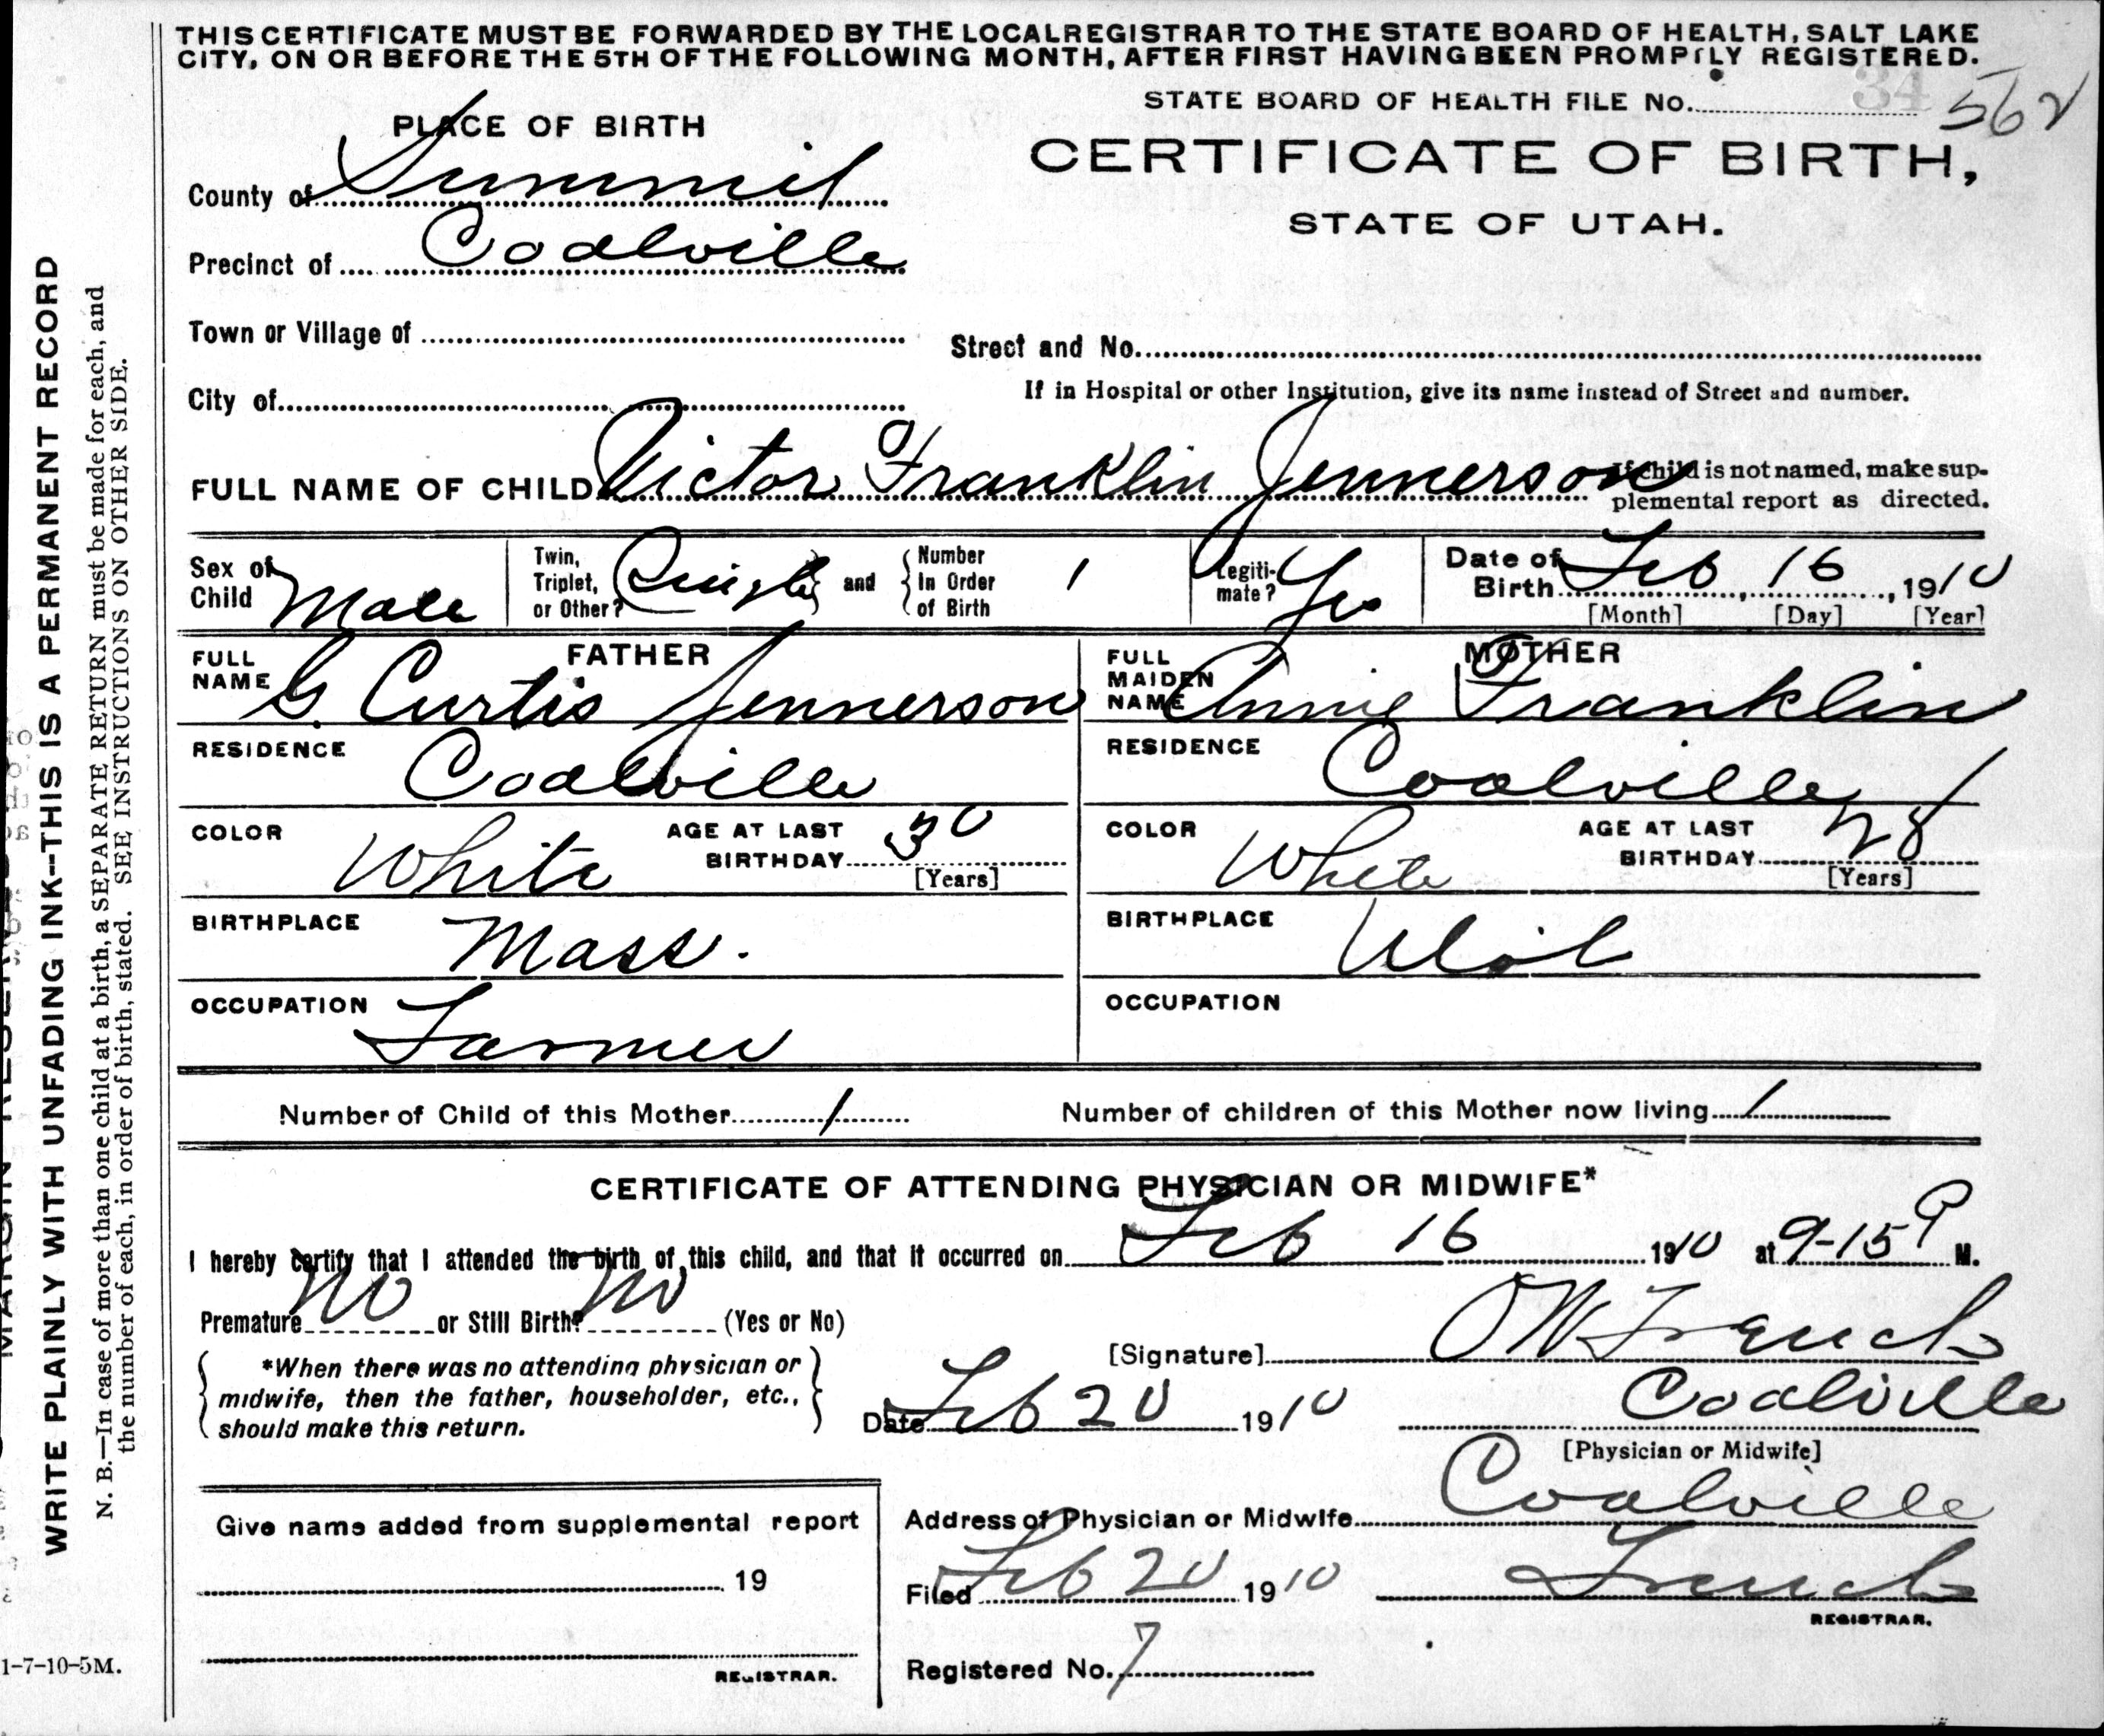 THIS CERTIFICATE MUST BE FORWARDED BY THE LOCAL REGISTRAR TO THE STATE BOARD OF HEALTH, SALT LAKE
CITY, ON OR BEFORE THE 5TH OF THE FOLLOWING MONTH, AFTER FIRST HAVING BEEN PROMPTLY REGISTERED.
STATE BOARD OF HEALTH FILE No. 34 562
PLACE OF BIRTH
CERTIFICATE OF BIRTH,
STATE OF UTAH.
County of Summit
Precinct of Coalville
Town or Village of
Street and No.
City of
If in Hospital or other Institution, give its name instead of Street and number.
FULL NAME OF CHILD Victor Franklin Jennerson
If child is not named, make sup-
plemental report as directed.
Sex of Child Male
Twin, Triplet, or Other? Single and Number In Order of Birth 1
Legiti-mate? Yes
Date of Birth Feb 16, 1910
[Month] [Day] [Year]
FATHER
FULL NAME G. Curtis Jennerson
RESIDENCE Coalville
COLOR White AGE AT LAST BIRTHDAY 30
[Years]
BIRTHPLACE Mass.
OCCUPATION Farmer
MOTHER
FULL MAIDEN NAME Annie Franklin
RESIDENCE Coalville
COLOR White AGE AT LAST BIRTHDAY 28
[Years]
BIRTHPLACE
OCCUPATION
Number of Child of this Mother 1 Number of children of this Mother now living 1
CERTIFICATE OF ATTENDING PHYSICIAN OR MIDWIFE*
I hereby certify that I attended the birth of this child, and that it occurred on Feb 16 1910 at 9-15 P M.
Premature No or Still Birth? No (Yes or No)
*When there was no attending physician or
midwife, then the father, householder, etc.,
should make this return.
[Signature] O W French
Date Feb 20 1910 Coalville
[Physician or Midwife]
Give name added from supplemental report
19
REGISTRAR.
Address of Physician or Midwife Coalville
Filed Feb 20 1910 French
REGISTRAR.
Registered No. 7
1-7-10-5M.
MARGIN RESERVED
WRITE PLAINLY WITH UNFADING INK--THIS IS A PERMANENT RECORD
N. B.—In case of more than one child at a birth, a SEPARATE RETURN must be made for each, and
the number of each, in order of birth, stated. SEE INSTRUCTIONS ON OTHER SIDE.